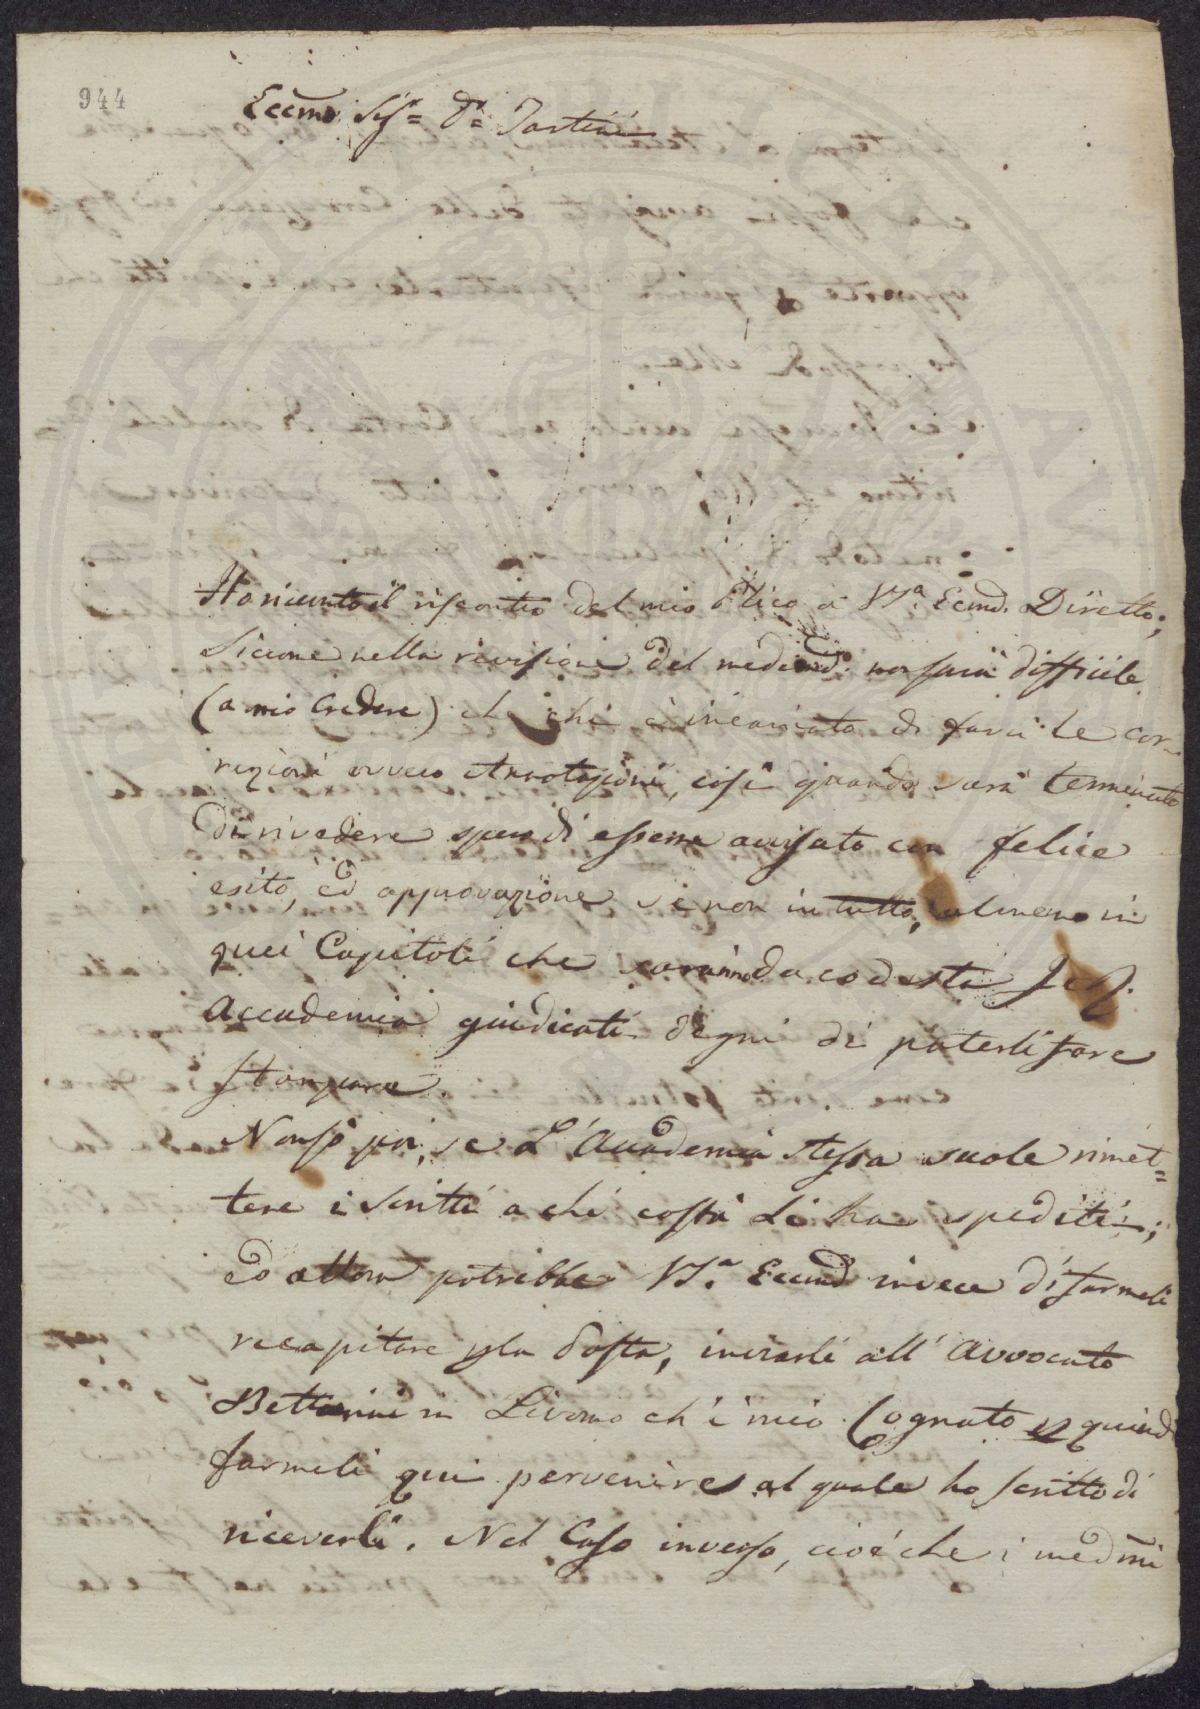 944
Eccmo Sigr= Dr= Tartini
Ho ricevuto il riscontro del mio Plico a V.Sa. Eccma. Diretto;
Siccome nella revisione del medesmo. non sarà difficile
(a mio credere) che chi è incaricato di farci le cor-
rezioni ovvero Annotazioni, così quando sarà terminato
di rivedere spero di essere avvisato con felice
esito, ed approvazione se non in tutto, almeno in
quei Capitoli che saranno da codesta
Accademia giudicati degni di poterli fare
stampare.
Non so poi, se L'Accademia stessa suole rimet=
tere i scritti a chi costà Li ha spediti;
ed allora potrebbe V.Sa. Eccma invece di farmeli
recapitare p la Posta, inviarli all' Avvocato
Bettarini in Livorno ch'è mio Cognato e quindi
farmeli qui pervenire al quale ho scritto di
riceverli. Nel Caso inverso, cioè che i medmi